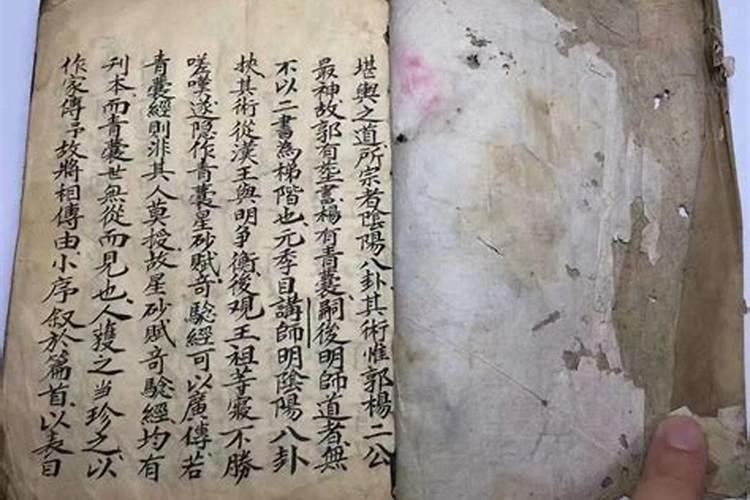 堪輿之道所宗者陰陽八卦其術惟郭楊二公
最神故郭有塟書楊有青囊嗣後明師道者無
不以二書為梯階也元季目講師明陰陽八卦
挾其術從漢王與明爭衡後观王祖等寢不勝
嗟嘆遂隐作青囊星砂賦竒騐經可以廣傳若
青囊經則非其人莫授故星砂賦竒騐經均有
刊本而青囊世無從而見也人獲之當珍之以
作家傳予故將相傳由小序叙於篇首以表目